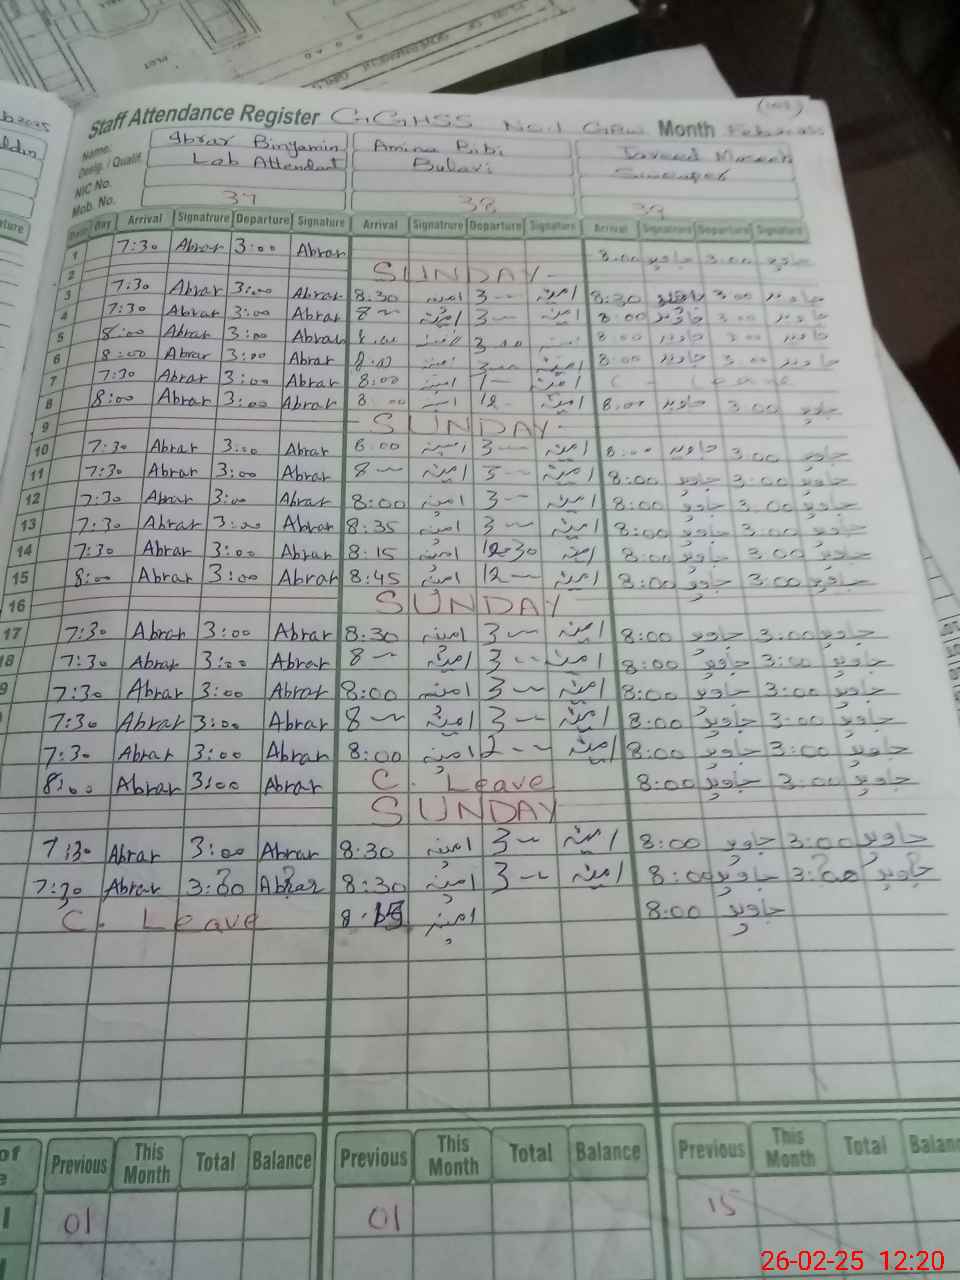 Staff Attendance Register GGHSS No.1 Month
Name. Abrar Binyamin Amina Bibi Javeed
Desig. / Qualif. Lab Attendant
NIC No.
Mob. No. 37 38 39
Date Day Arrival Signatrure Departure Signature Arrival Signatrure Departure Signature Arrival Signatrure Departure Signature
1 7:30 Abrar 3:00 Abrar 8:00 جاوید 3:00 جاوید
2 SUNDAY
3 7:30 Abrar 3:00 Abrar 8:30 امینہ 3 امینہ 8:30 جاوید 3:00 جاوید
4 7:30 Abrar 3:00 Abrar 8 امینہ 3 امینہ 8:00 جاوید 3:00 جاوید
5 8:00 Abrar 3:00 Abrar 3:00 8:00 جاوید 3:00 جاوید
6 8:00 Abrar 3:00 Abrar امینہ 8:00 جاوید 3:00 جاوید
7 7:30 Abrar 3:00 Abrar 8:00 امینہ 1 امینہ C. Leave
8 8:00 Abrar 3:00 Abrar 8:00 امینہ 12 امینہ 8:00 جاوید 3:00 جاوید
9 SUNDAY
10 7:30 Abrar 3:00 Abrar 8:00 امینہ 3 امینہ 8:00 جاوید 3:00 جاوید
11 7:30 Abrar 3:00 Abrar 8 امینہ 3 امینہ 8:00 جاوید 3:00 جاوید
12 7:30 Abrar 3:00 Abrar 8:00 امینہ 3 امینہ 8:00 جاوید 3:00 جاوید
13 7:30 Abrar 3:00 Abrar 8:35 امینہ 3 امینہ 8:00 جاوید 3:00 جاوید
14 7:30 Abrar 3:00 Abrar 8:15 امینہ 12:30 امینہ 8:00 جاوید 3:00 جاوید
15 8:00 Abrar 3:00 Abrar 8:45 امینہ 12 امینہ 8:00 جاوید 3:00 جاوید
16 SUNDAY
17 7:30 Abrar 3:00 Abrar 8:30 امینہ 3 امینہ 8:00 جاوید 3:00 جاوید
18 7:30 Abrar 3:00 Abrar 8 امینہ 3 امینہ 8:00 جاوید 3:00 جاوید
9 7:30 Abrar 3:00 Abrar 8:00 امینہ 3 امینہ 8:00 جاوید 3:00 جاوید
7:30 Abrar 3:00 Abrar 8 امینہ 3 امینہ 8:00 جاوید 3:00 جاوید
7:30 Abrar 3:00 Abrar 8:00 امینہ 2 امینہ 8:00 جاوید 3:00 جاوید
8:00 Abrar 3:00 Abrar C. Leave 8:00 جاوید 3:00 جاوید
SUNDAY
7:30 Abrar 3:00 Abrar 8:30 امینہ 3 امینہ 8:00 جاوید 3:00 جاوید
7:30 Abrar 3:00 Abrar 8:30 امینہ 3 امینہ 8:00 جاوید 3:00 جاوید
C. Leave 8:15 امینہ 8:00 جاوید
Previous This Month Total Balance Previous This Month Total Balance Previous This Month Total Balanc
01 01 15
26-02-25 12:20